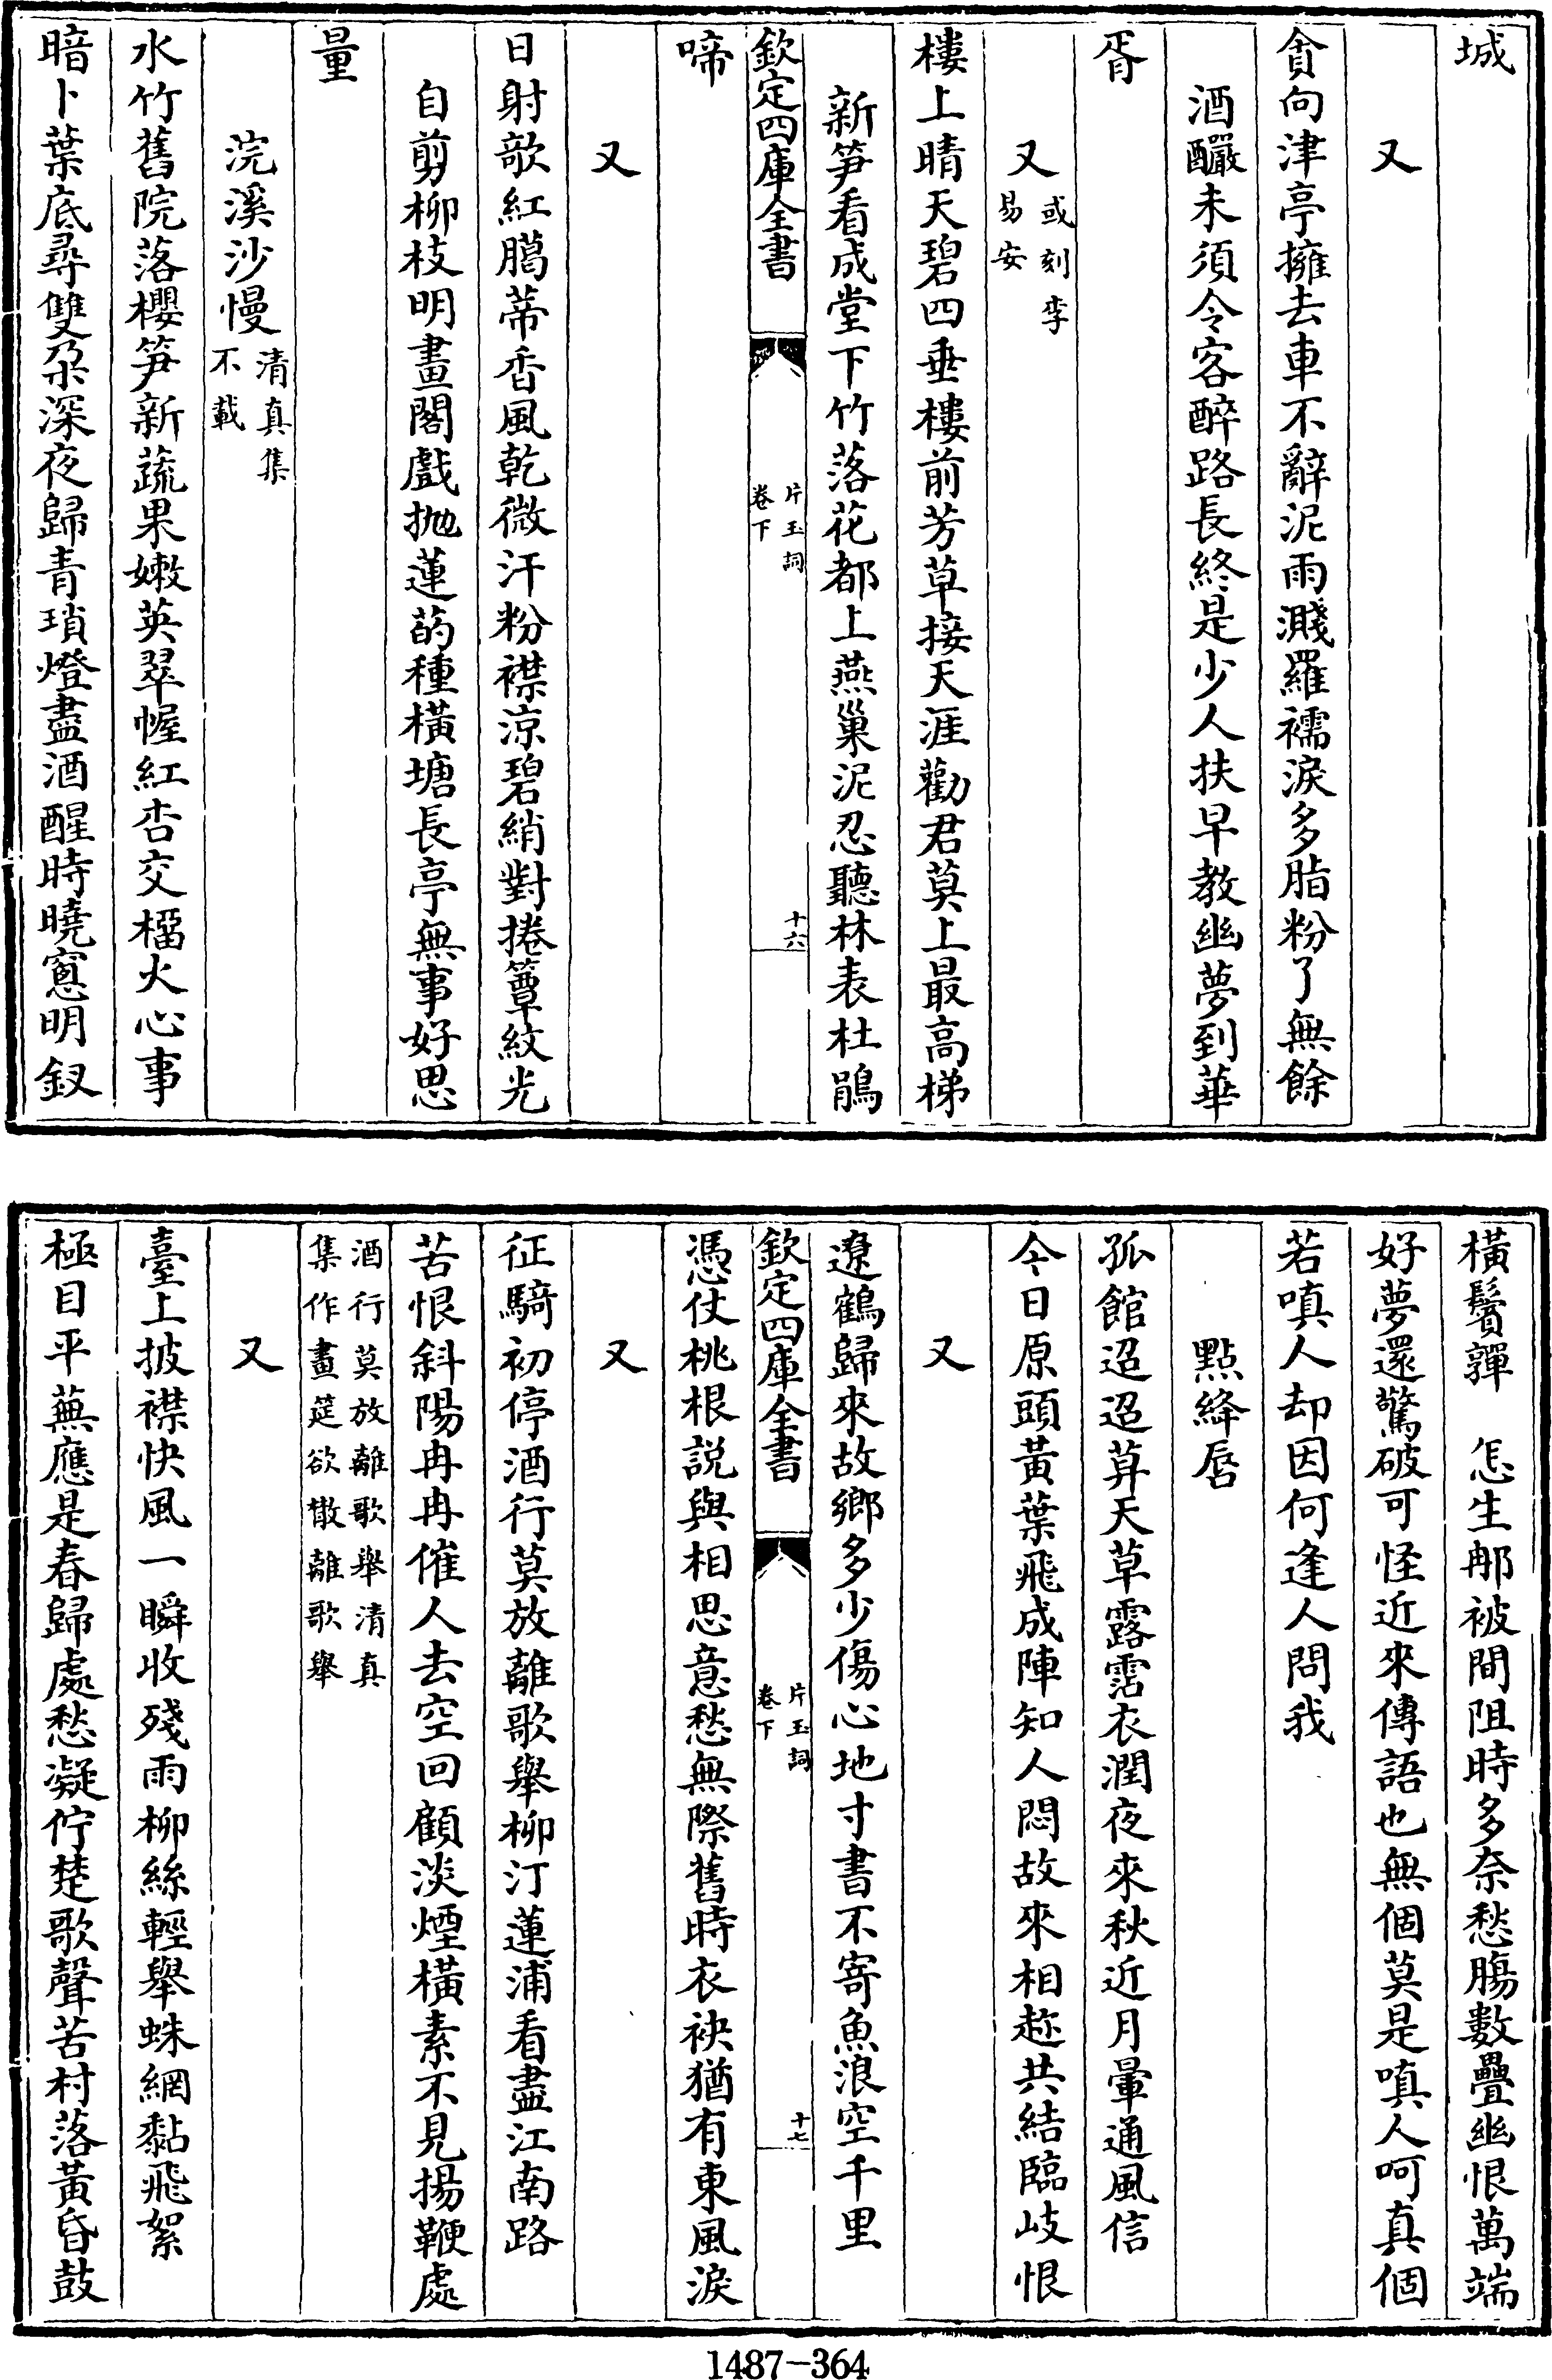 城
又
貪向津亭擁去車不辭泥雨濺羅襦淚多脂粉了無餘
酒釅未須令客醉路長終是少人扶早教幽夢到華
胥
又或刻李易安
樓上晴天碧四垂樓前芳草接天涯勸君莫上最高梯
新筍看成堂下竹落花都上燕巢泥忍聽林表杜鵑
欽定四庫全書 片玉詞卷下 十六
啼
又
日射欹紅蠟蔕香風乾微汗粉襟涼碧綃對捲簟紋光
自剪柳枝明畫閣戲拋蓮菂種橫塘長亭無事好思
量
浣溪沙慢清真集不載
水竹舊院落櫻笋新蔬果嫩英翠幄紅杏交榴火心事
暗卜葉底尋雙朶深夜歸青瑣燈盡酒醒時曉窓明釵
橫鬢嚲 怎生那被間阻時多奈愁腸數疊幽恨萬端
好夢還驚破可怪近來傳語也無個莫是嗔人呵真個
若嗔人却因何逢人問我
點絳唇
孤館迢迢算天草露霑衣潤夜來秋近月暈通風信
今日原頭黃葉飛成陣知人悶故來相趂共結臨岐恨
又
遼鶴歸來故鄉多少傷心地寸書不寄魚浪空千里
欽定四庫全書 片玉詞卷下 十七
憑仗桃根説與相思意愁無際舊時衣袂猶有東風淚
又
征騎初停酒行莫放離歌舉柳汀蓮浦看盡江南路
苦恨斜陽冉冉催人去空回顧淡煙橫素不見揚鞭處
酒行莫放離歌舉清真集作畫筵欲散離歌舉
又
臺上披襟快風一瞬收殘雨柳絲輕舉蛛網黏飛絮
極目平蕪應是春歸處愁凝佇楚歌聲苦村落黃昏鼓
1487-364